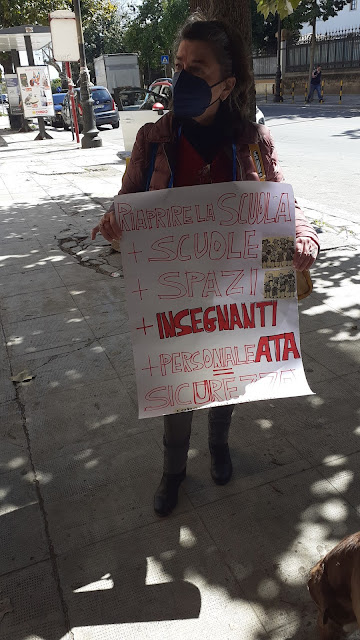 RIAPRIRE LA SCUOLA
+ SCUOLE
+ SPAZI
+ INSEGNANTI
+ PERSONALE ATA
=
SICUREZZA